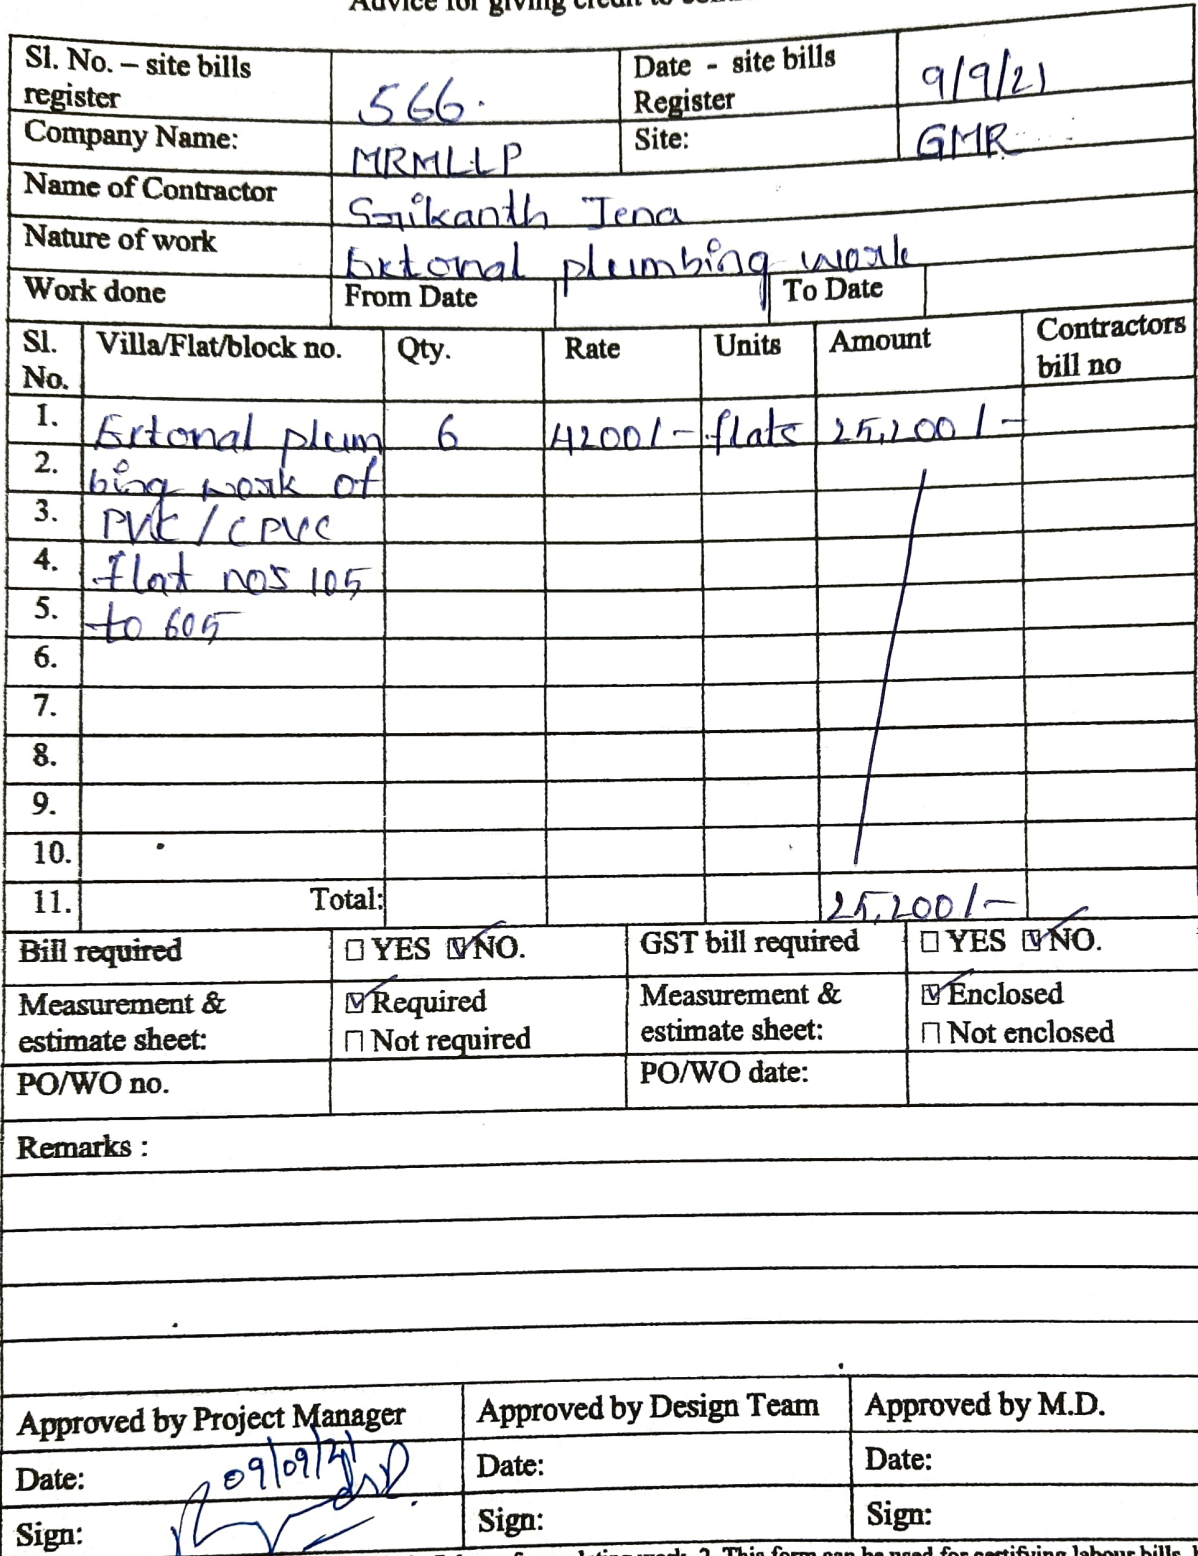 Advice for giving credit to
Sl. No. – site bills register 566. Date - site bills Register 9/9/21
Company Name: MRMLLP Site: GMR
Name of Contractor Srikanth Jena
Nature of work Extonal plumbing work
Work done From Date To Date
Sl. No. Villa/Flat/block no. Qty. Rate Units Amount Contractors bill no
1. Extonal plum 6 4200/- flats 25,200/-
2. bing work of
3. PVC / CPVC
4. flat nos 105
5. to 605
6.
7.
8.
9.
10.
11. Total: 25,200/-
Bill required ☐ YES ☑ NO. GST bill required ☐ YES ☑ NO.
Measurement & estimate sheet: ☑ Required ☐ Not required Measurement & estimate sheet: ☑ Enclosed ☐ Not enclosed
PO/WO no. PO/WO date:
Remarks :
Approved by Project Manager Approved by Design Team Approved by M.D.
Date: 09/09/21 Date: Date:
Sign: Sign: Sign:
2. This form can be used for certifying labour bills,